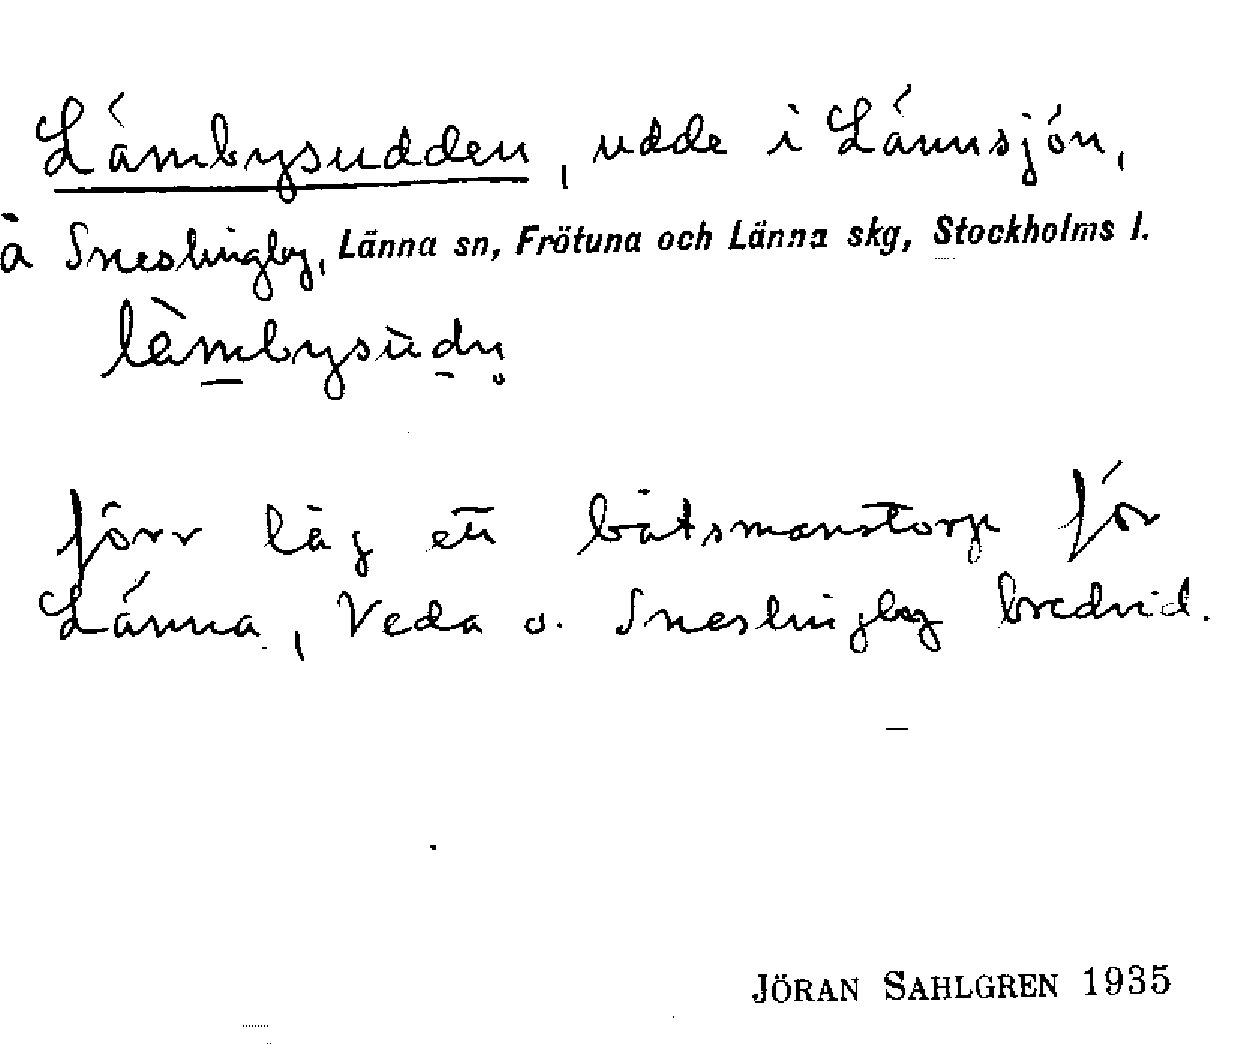 Lämbysudden, udde i Lännsjön,
å Sneslingby, Länna sn, Frötuna och Länna skg, Stockholms l.
lämbysùdn̥
förr låg ett båtsmanstorp för
Länna, Veda o. Sneslingby bredvid.
JÖRAN SAHLGREN 1935